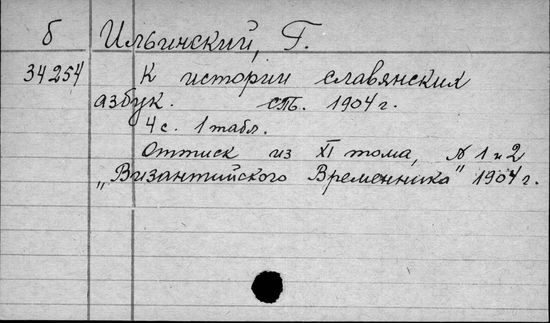 б Ильинский, Г.
34254 К истории славянских
азбук. 1904 г.
4 с. 1 табл.
Оттиск из XI тома, № 1 и 2
„Византийского Временника" 1904 г.